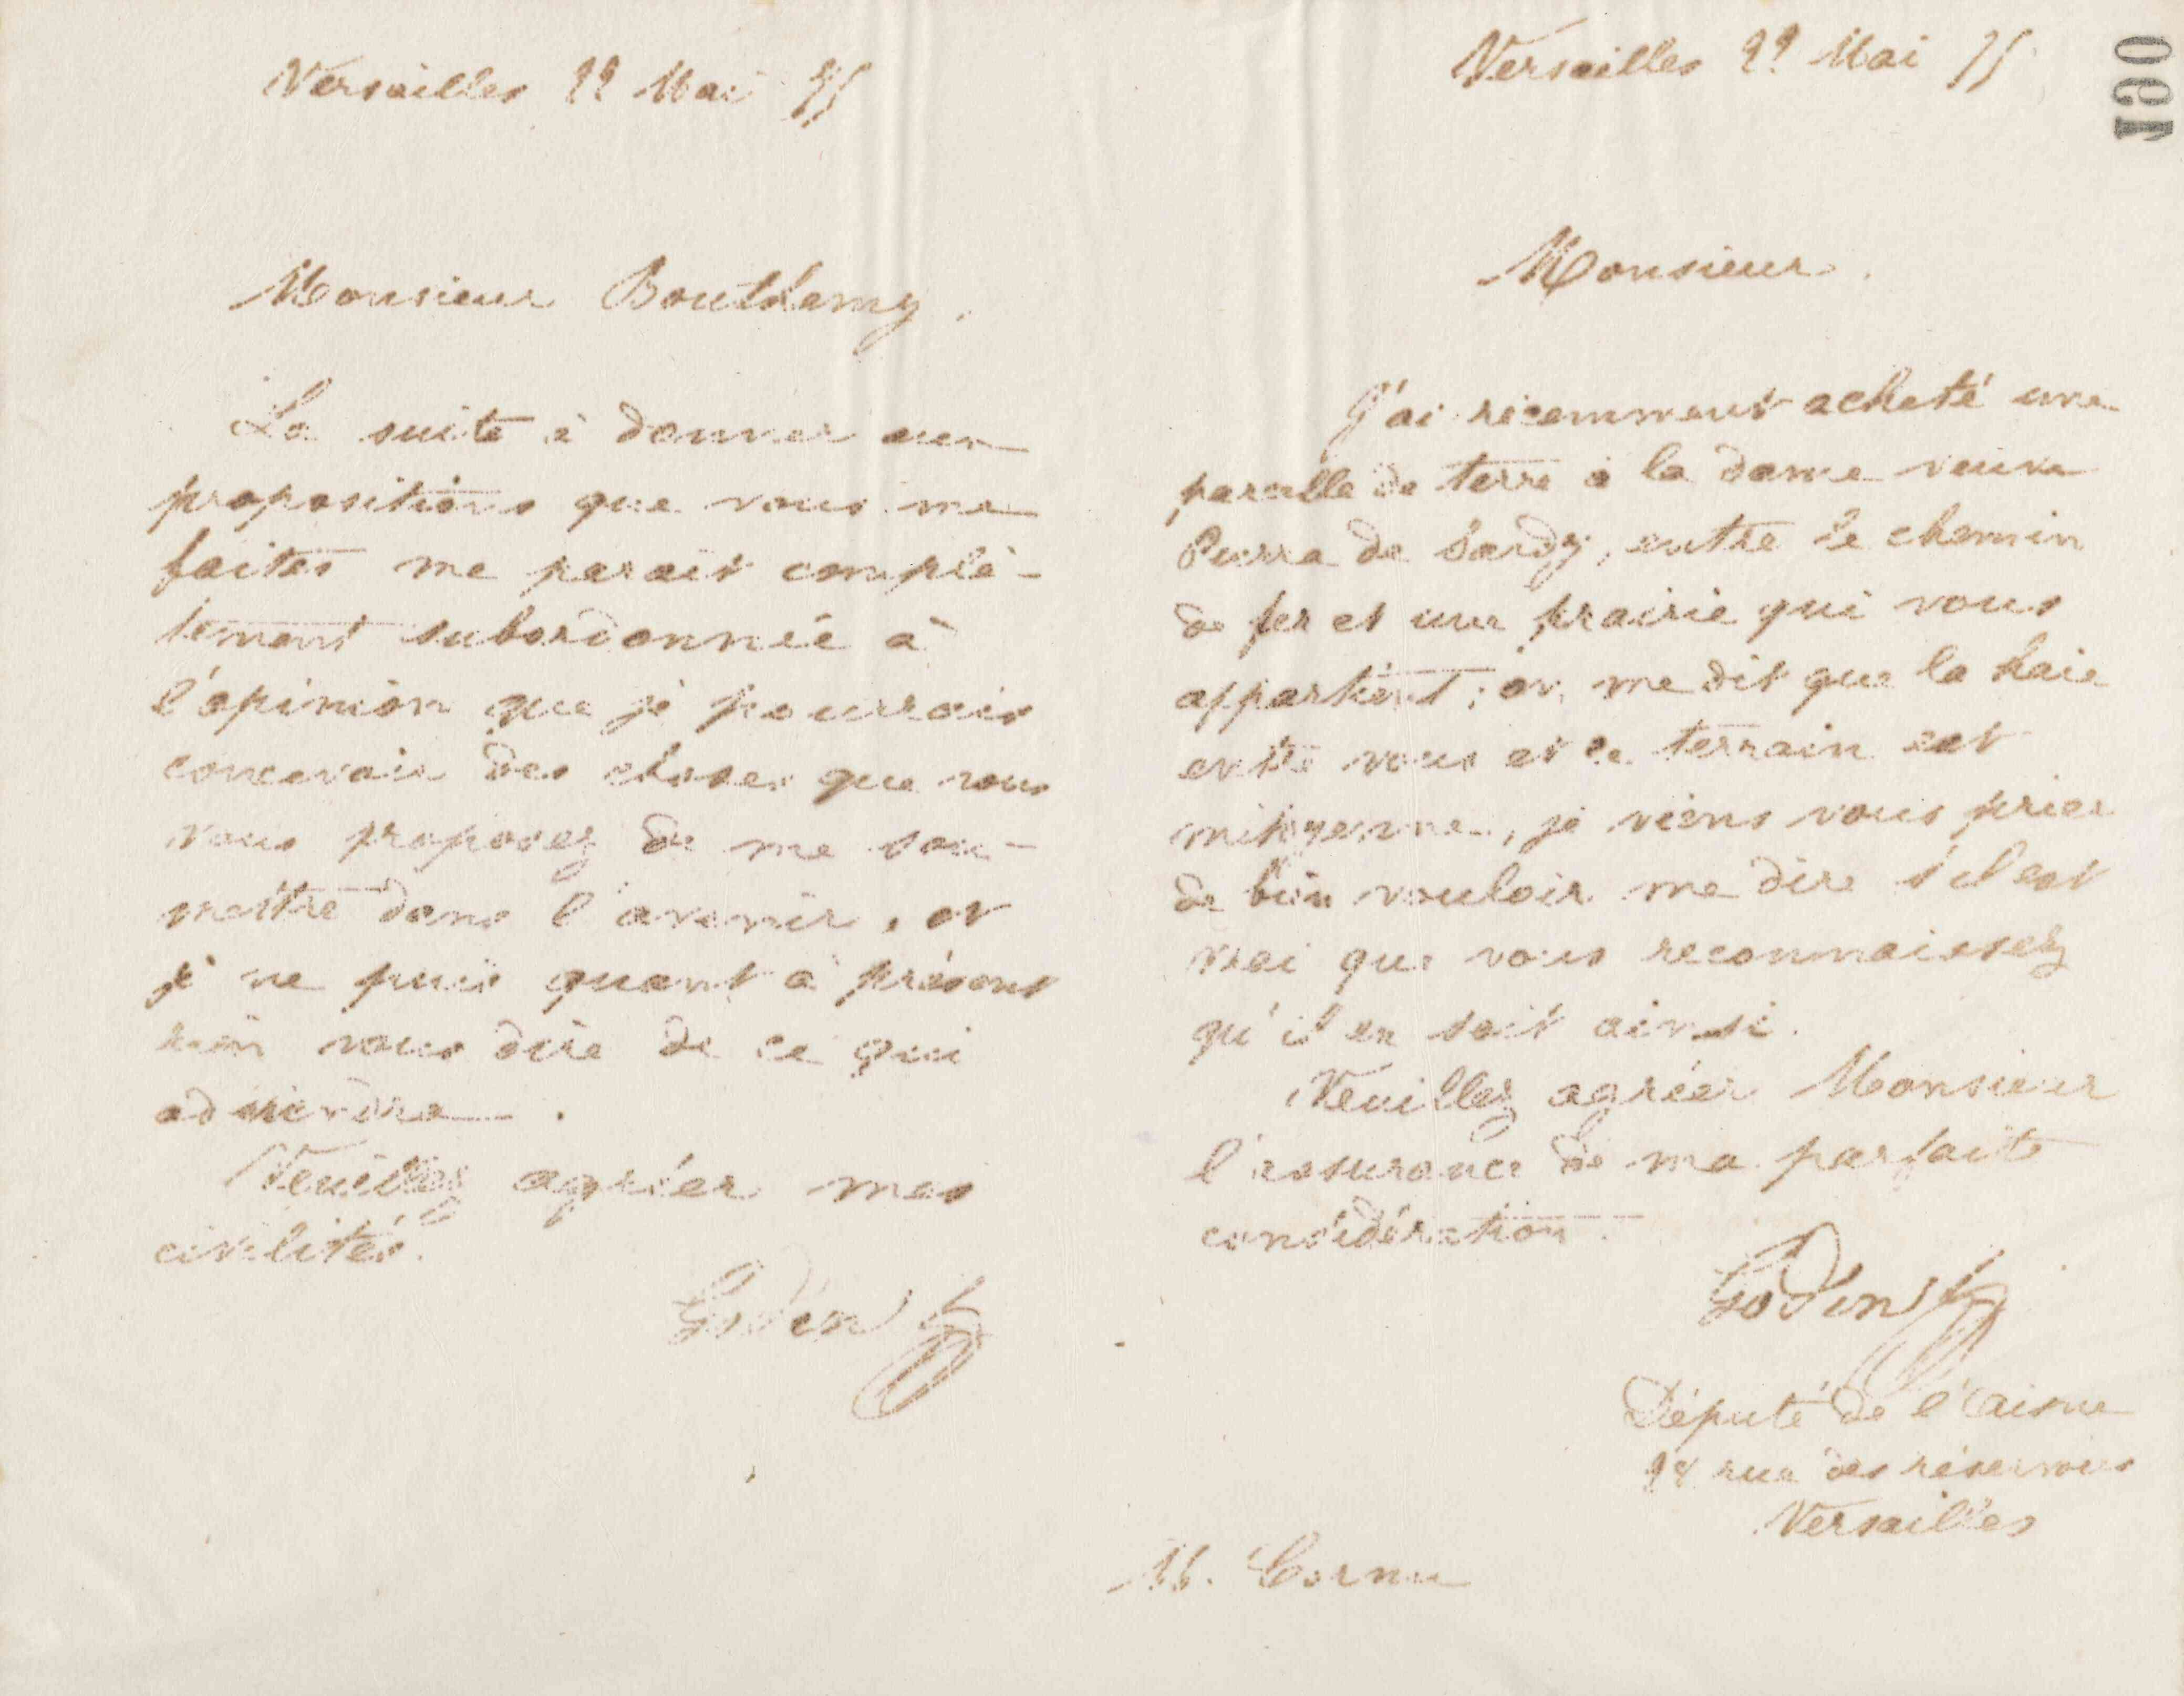 Versailles 22 Mai 75
Monsieur Bouthemy.
La suite à donner aux
propositions que vous me
faites me parait complè-
tement subordonnée à
l'opinion que je pourrais
concevoir des choses que vous
vous proposez de me sou-
mettre dans l'avenir, et
je ne puis quant à présent
rien vous dire de ce qui
adviendra.
Veuillez agréer mes
civilités.
Godin
190
Versailles 22 Mai 75
Monsieur.
J'ai récemment acheté une
parcelle de terre à la dame veuve
de Sardy, entre le chemin
de fer et une prairie qui vous
appartient; on me dit que la haie
entre vous et ce terrain est
mitoyenne, je viens vous prier
de bien vouloir me dire s'il est
vrai que vous reconnaissez
qu'il en soit ainsi.
Veuillez agréer Monsieur
l'assurance de ma parfaite
considération.
Godin
Député de l'Aisne
rue des réservoirs
Versailles
M. Cornu